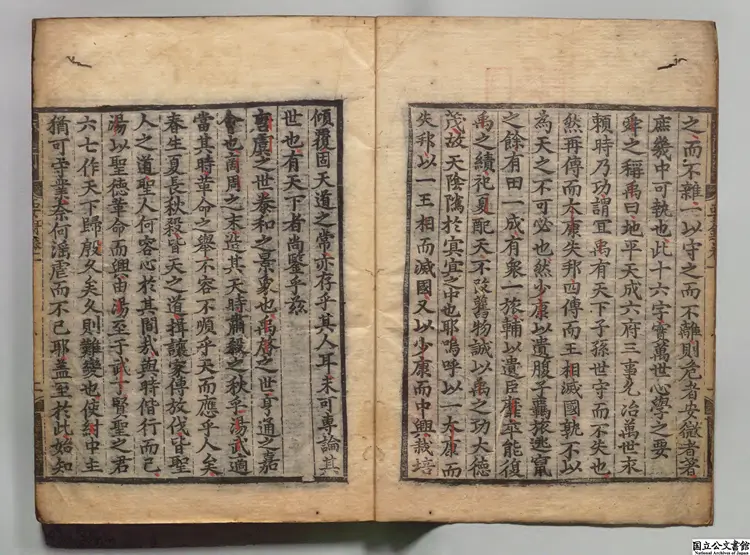 之而不雜一以守之而不離則危者安微者著
庶幾中可執也此十六字實萬世心學之要
舜之稱禹曰地平天成六府三事允治萬世永
頼時乃功謂冝禹有天下子孫世守而不失也
然再傳而太康失邦四傳而王相滅國孰不以
為天之不可必也然少康以遺腹子羈旅逃竄
之餘有田一成有衆一旅輔以遺臣靡卒能復
禹之績祀夏配天不改舊物誠以禹之功大德
茂故天陰隲於冥冥之中也耶嗚呼以一太康而
失邦以一王相而滅國又以少康而中興栽培
傾覆固天道之常亦存乎其人耳未可專論其
世也有天下者尚鑒乎玆
唐虞之世泰和之景象也禹啓之世亨通之嘉
會也商周之末造其天時肅殺之秋乎湯武適
當其時革命之舉不容不順乎天而應乎人矣
春生夏長秋殺皆天之道揖讓家傳放伐皆聖
人之道聖人何容心於其間哉與時偕行而已
湯以聖德革命而興由湯至于武丁賢聖之君
六七作天下歸殷久矣久則難變也使紂中主
猶可守業桀何滛虐而不已耶盖至於此始知
国立公文書館
National Archives of Japan